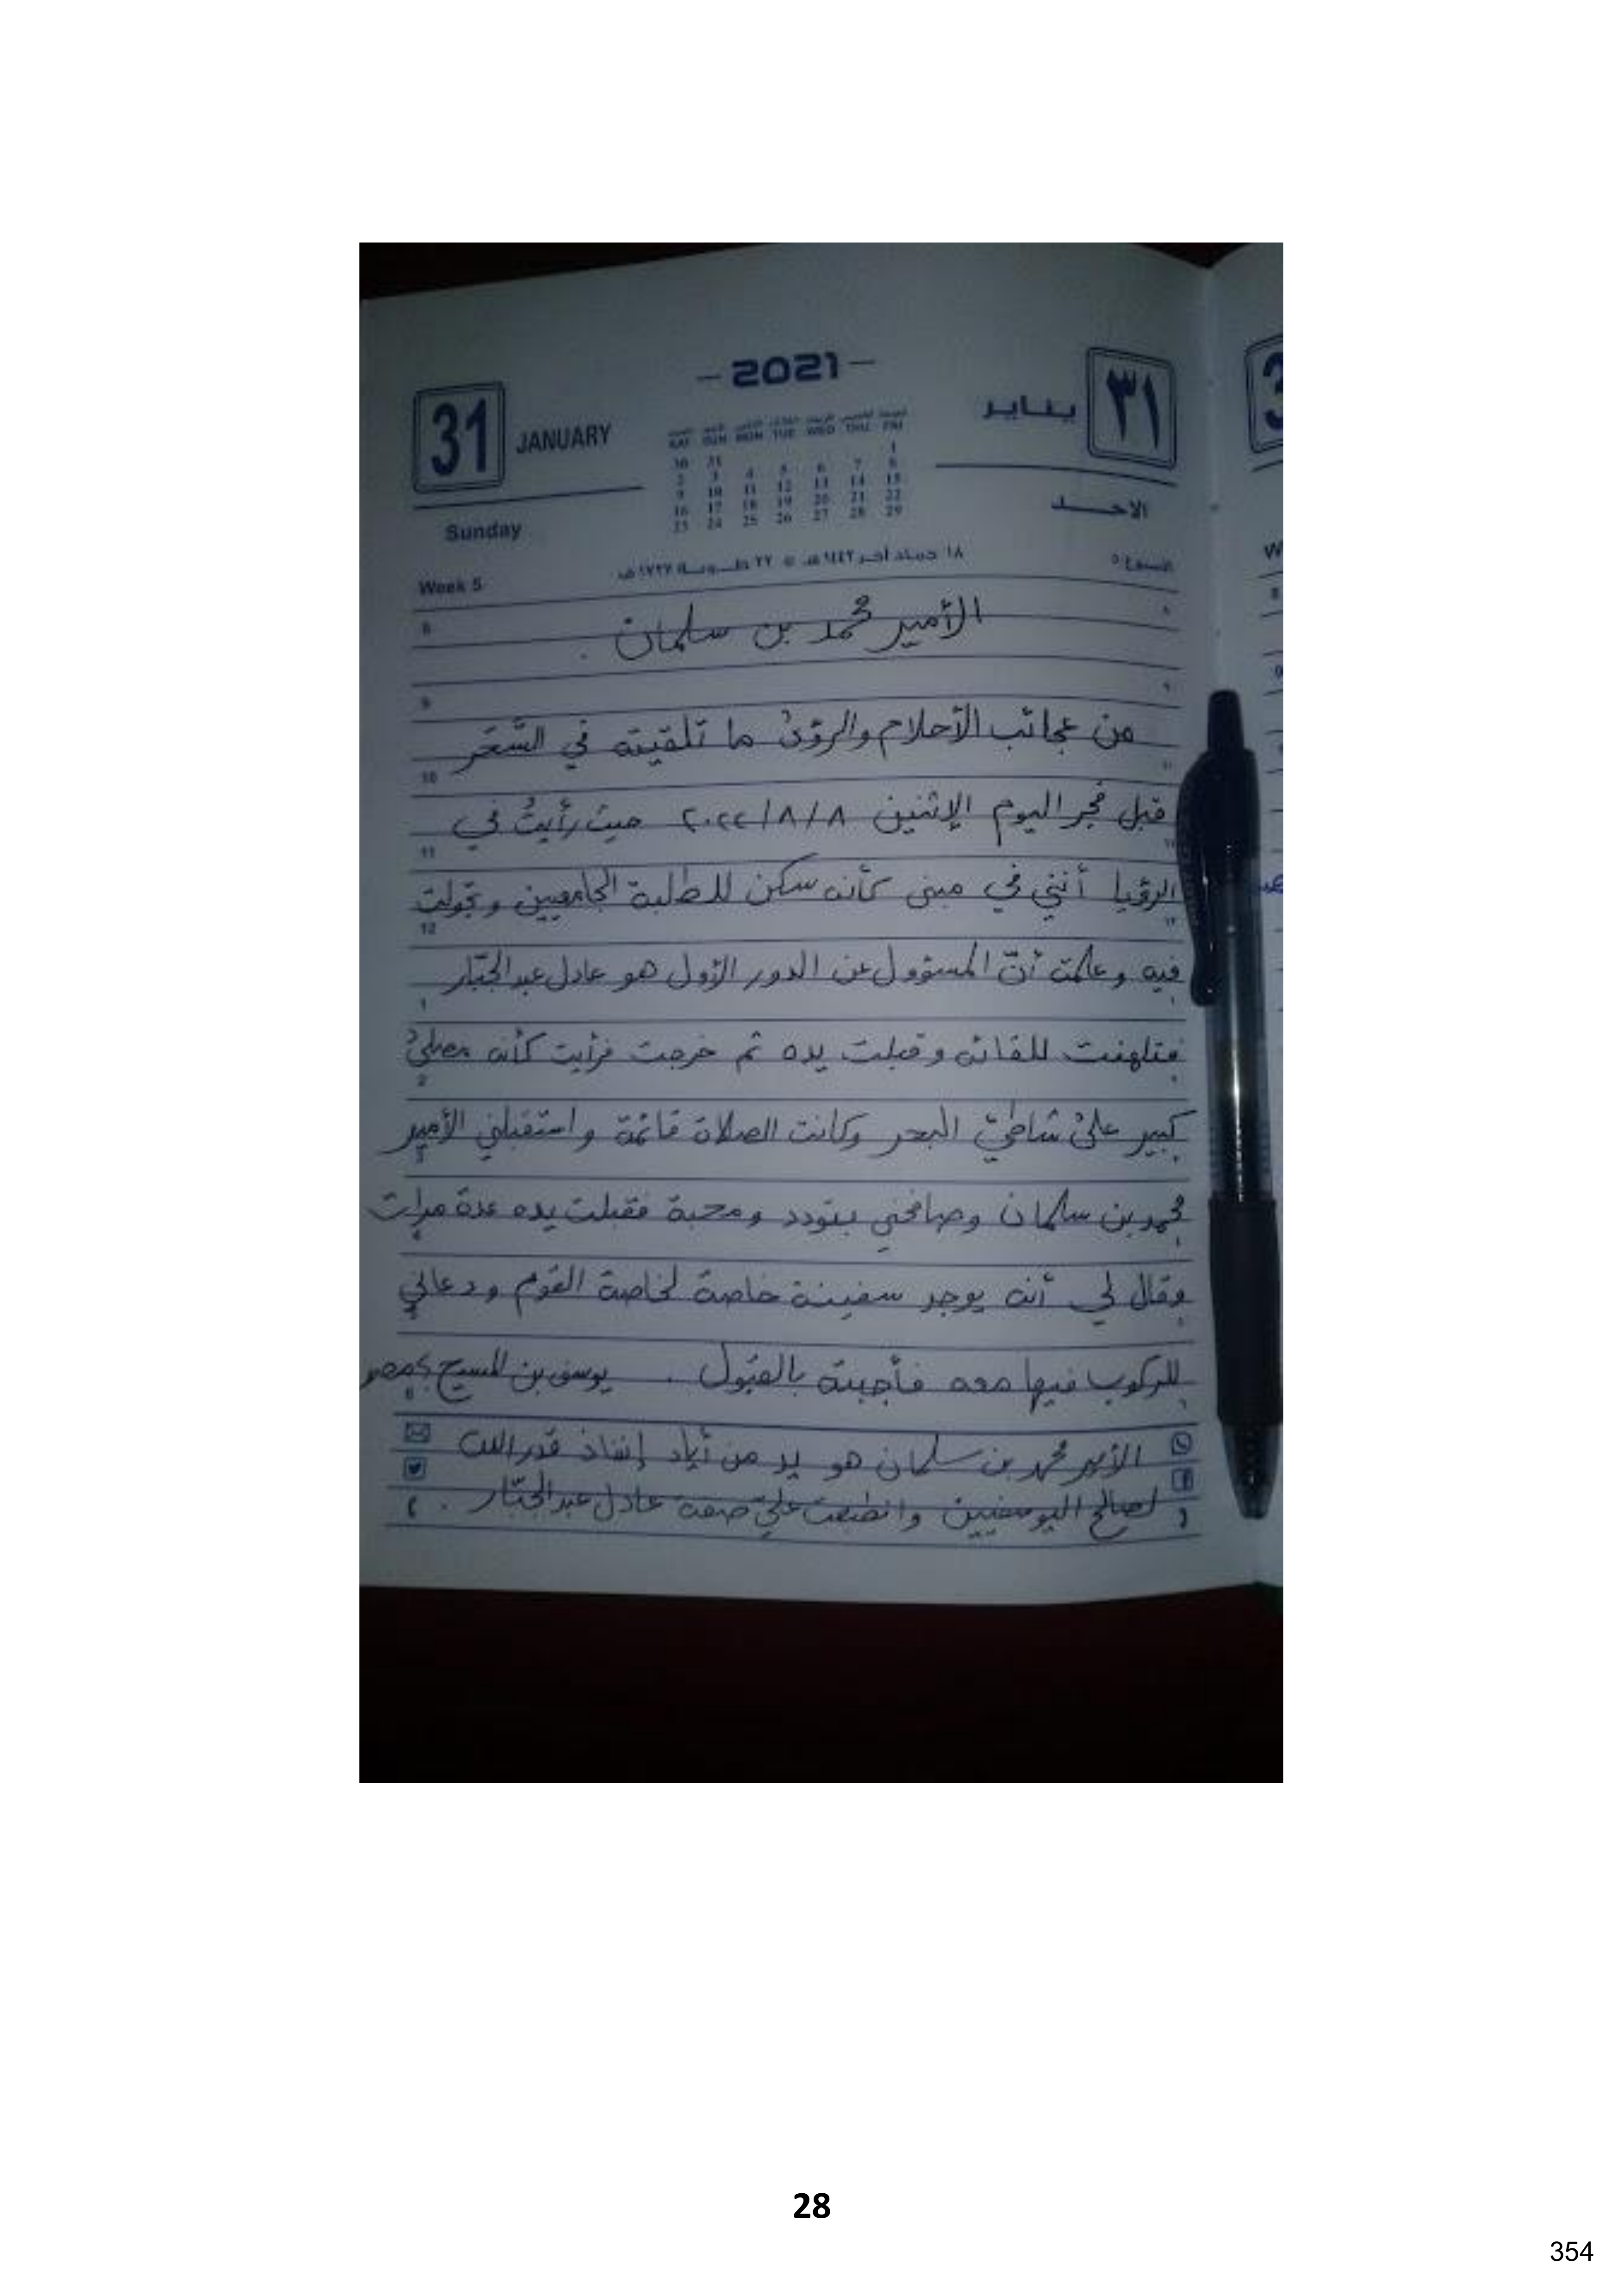 - 2021 -
31 JANUARY
يناير ٣١
SAT SUN MON TUE WED THU FRI
30 31 1
2 3 4 5 6 7 8
9 10 11 12 13 14 15
16 17 18 19 20 21 22
23 24 25 26 27 28 29
Sunday
الاحــد
Week 5
الأمير محمد بن سلمان .
من عجائب الأحلام والرؤىٰ ما تلقيته في السَّحَر
قبل فجر اليوم الإثنين ٢٠٢٢/٨/٨ حيث رأيتُ في
الرؤيا أنني في مبنى كأنه سكن للطلبة الجامعيين وتجولت
فيه وعلمت أنّ المسؤول عن الدور الأول هو عادل عبد الجبّار
فتلهفت للقائه وقبلت يده ثم خرجت فرأيت كأنه مصلىٰ
كبير علىٰ شاطئ البحر وكانت الصلاة قائمة واستقبلني الأمير
محمد بن سلمان وصافحني بتودد ومحبة فقبلت يده عدة مرات
وقال لي أنه يوجد سفينة خاصة لخاصة القوم ودعاني
للركوب فيها معه فأجبته بالقبول . يوسف بن المسيح بمصر
الأمير محمد بن سلمان هو يد من أياد إنفاذ قدر الله
لصالح اليوسفيين وانطبعت عليّ صفة عادل عبد الجبّار .
28
354